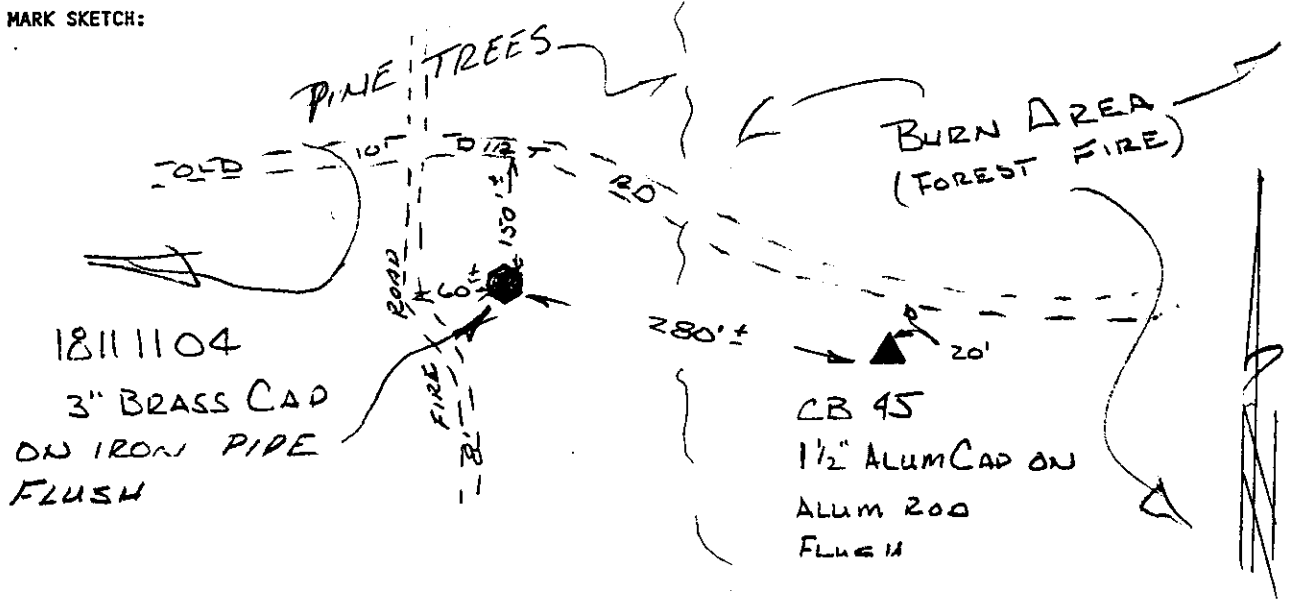 MARK SKETCH:
PINE TREES
OLD 10' DIRT RD
BURN AREA
(FOREST FIRE)
150'±
60'±
FIRE ROAD
8'
280'±
20'
18111104
3" BRASS CAP
ON IRON PIPE
FLUSH
CB 45
1 1/2" ALUM CAP ON
ALUM ROD
FLUSH